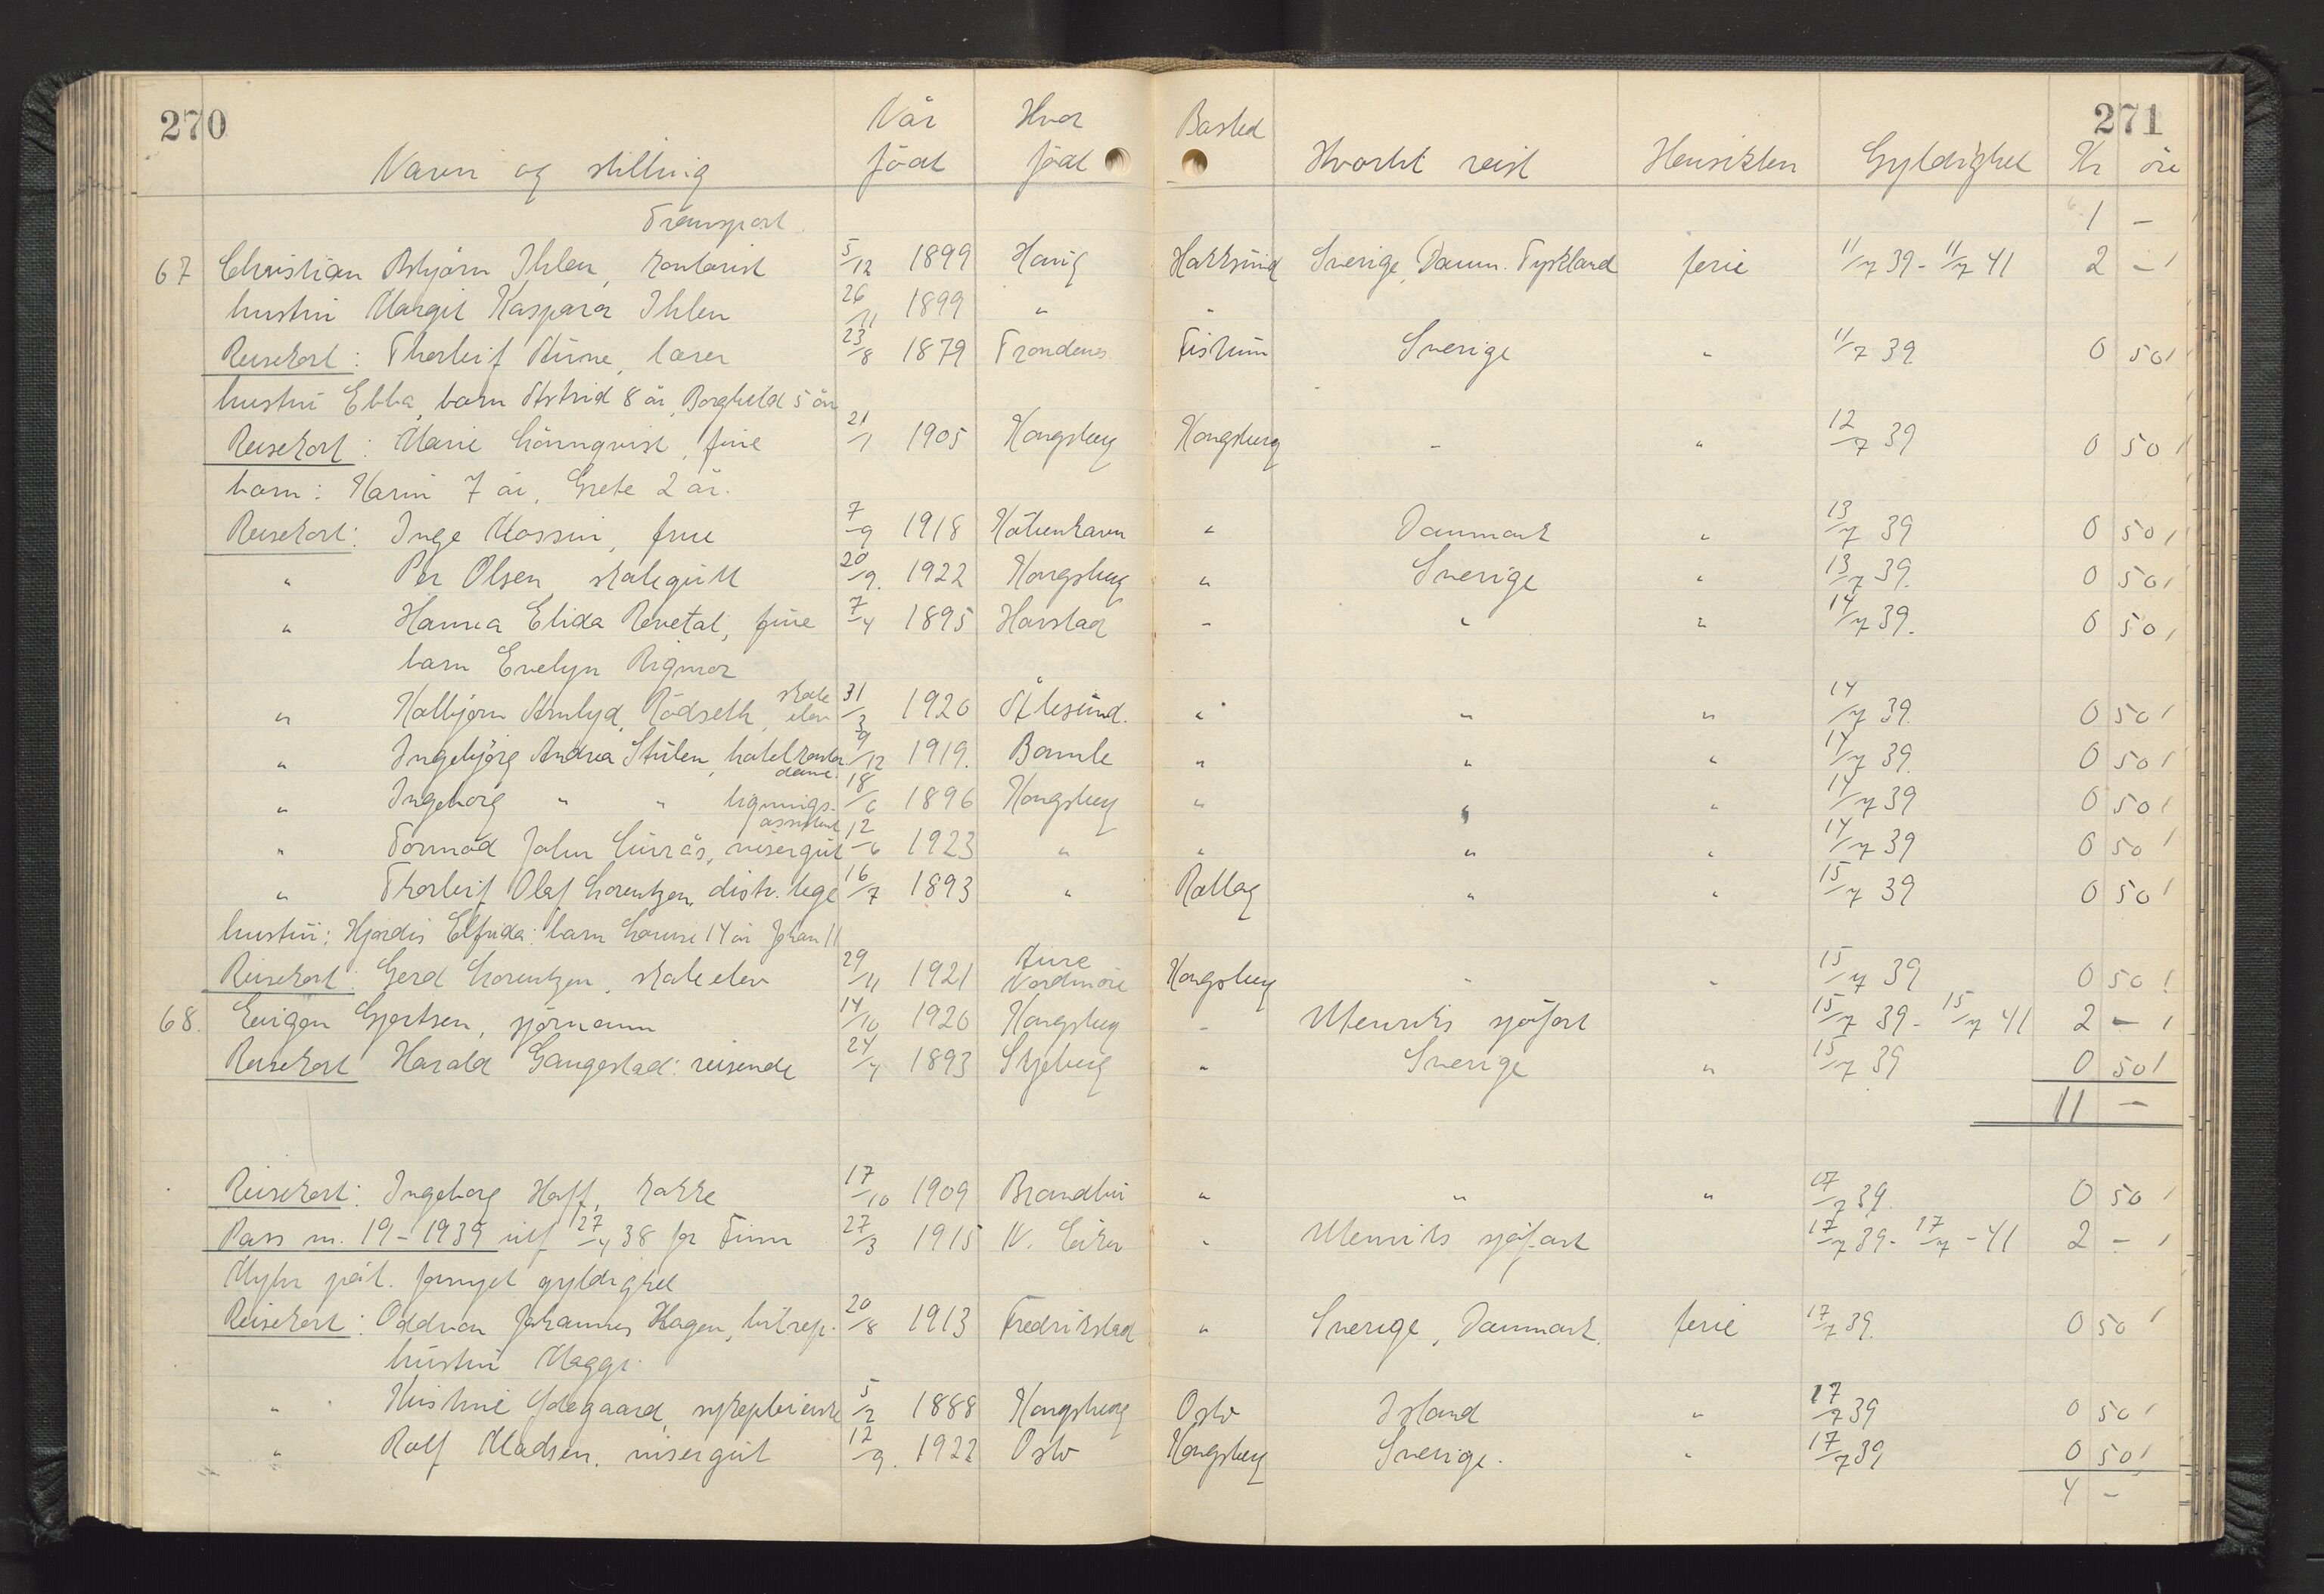 270
271
Når Hvor Bosted
Navn og stilling født født Hvorhit reist Hensikten Gyldighet Kr øre
Transport 1 –
67 Christian Asbjørn Ihlen, kontorist 5/12 1899 Hokksund Sverige, Danm. Tyskland ferie 11/7 39 - 11/7 41 2 –
hustru Margit Kaspara Ihlen 26/11 1899 "
Reisekort: Thorleif Aune, lærer 23/8 1879 Trondenes Fiskum Sverige " 11/7 39 0 50
hustru Ebba, barn Astrid 8 år, Borghild 5 år
Reisekort: Marie Lönnqvist, frue 21/1 1905 Kongsberg Kongsberg - " 12/7 39 0 50
barn: Karin 7 år, Grete 2 år.
Reisekort: Inge Mossin, frue 7/9 1918 København " Danmark " 13/7 39 0 50
" Per Olsen skolegutt 20/9. 1922 Kongsberg " Sverige " 13/7 39. 0 50
" Hanna Elida Revetal, frue 7/4 1895 Harstad - " " 14/7 39. 0 50
barn Evelyn Rigmor
" Kolbjørn Arnlyd, Rødseth, skoleelev 31/3 1920 Ålesund. " " " 14/7 39. 0 50
" Ingebjørg Andrea Stulen, hotelkontordame 9/12 1919. Bamle " " " 14/7 39. 0 50
" Ingeborg " " ligningsassistent 18/6 1896 Kongsberg " " " 14/7 39 0 50
" Tormod John Lurås, visergut 12/6 1923 " " " " 14/7 39 0 50
" Thorleif Olaf Lorentzen, distr. lege 16/7 1893 " Rollag " " 15/7 39 0 50
hustru: Hjørdis Elfrida: barn Louise 14 år Johan 11
Reisekort: Gerd Lorentzen, skoleelev 29/11 1921 Aure Nordmøre Kongsberg - " 15/7 39 0 50
68. Eugen Gjertsen, sjømann 14/10 1920 Kongsberg - Utenriks sjøfart 15/7 39 - 15/7 41 2 –
Reisekort Harald Gangestad: reisende 24/4 1893 Skjeberg " Sverige " 15/7 39 0 50
11 –
Reisekort: Ingeborg Hoff, kokke 17/10 1909 Brandbu " " " 17/7 39. 0 50
Pass nr. 19 - 1939 utf 27/4 38 for Finn 27/3 1915 N. Eiker " Utenriks sjøfart 17/7 39 - 17/7 - 41 2 –
Myhr påt. fornyet gyldighet
Reisekort: Oddvar Johannes Hagen, bilrep. 20/8 1913 Fredrikstad " Sverige, Danmark. ferie 17/7 39. 0 50
hustru Maggi
" Kristine Ødegaard, sykepleierske 5/2 1888 Kongsberg Oslo Island " 17/7 39 0 50
" Rolf Madsen. visergut 12/9. 1922 Oslo Kongsberg Sverige. " 17/7 39 0 50
4 –